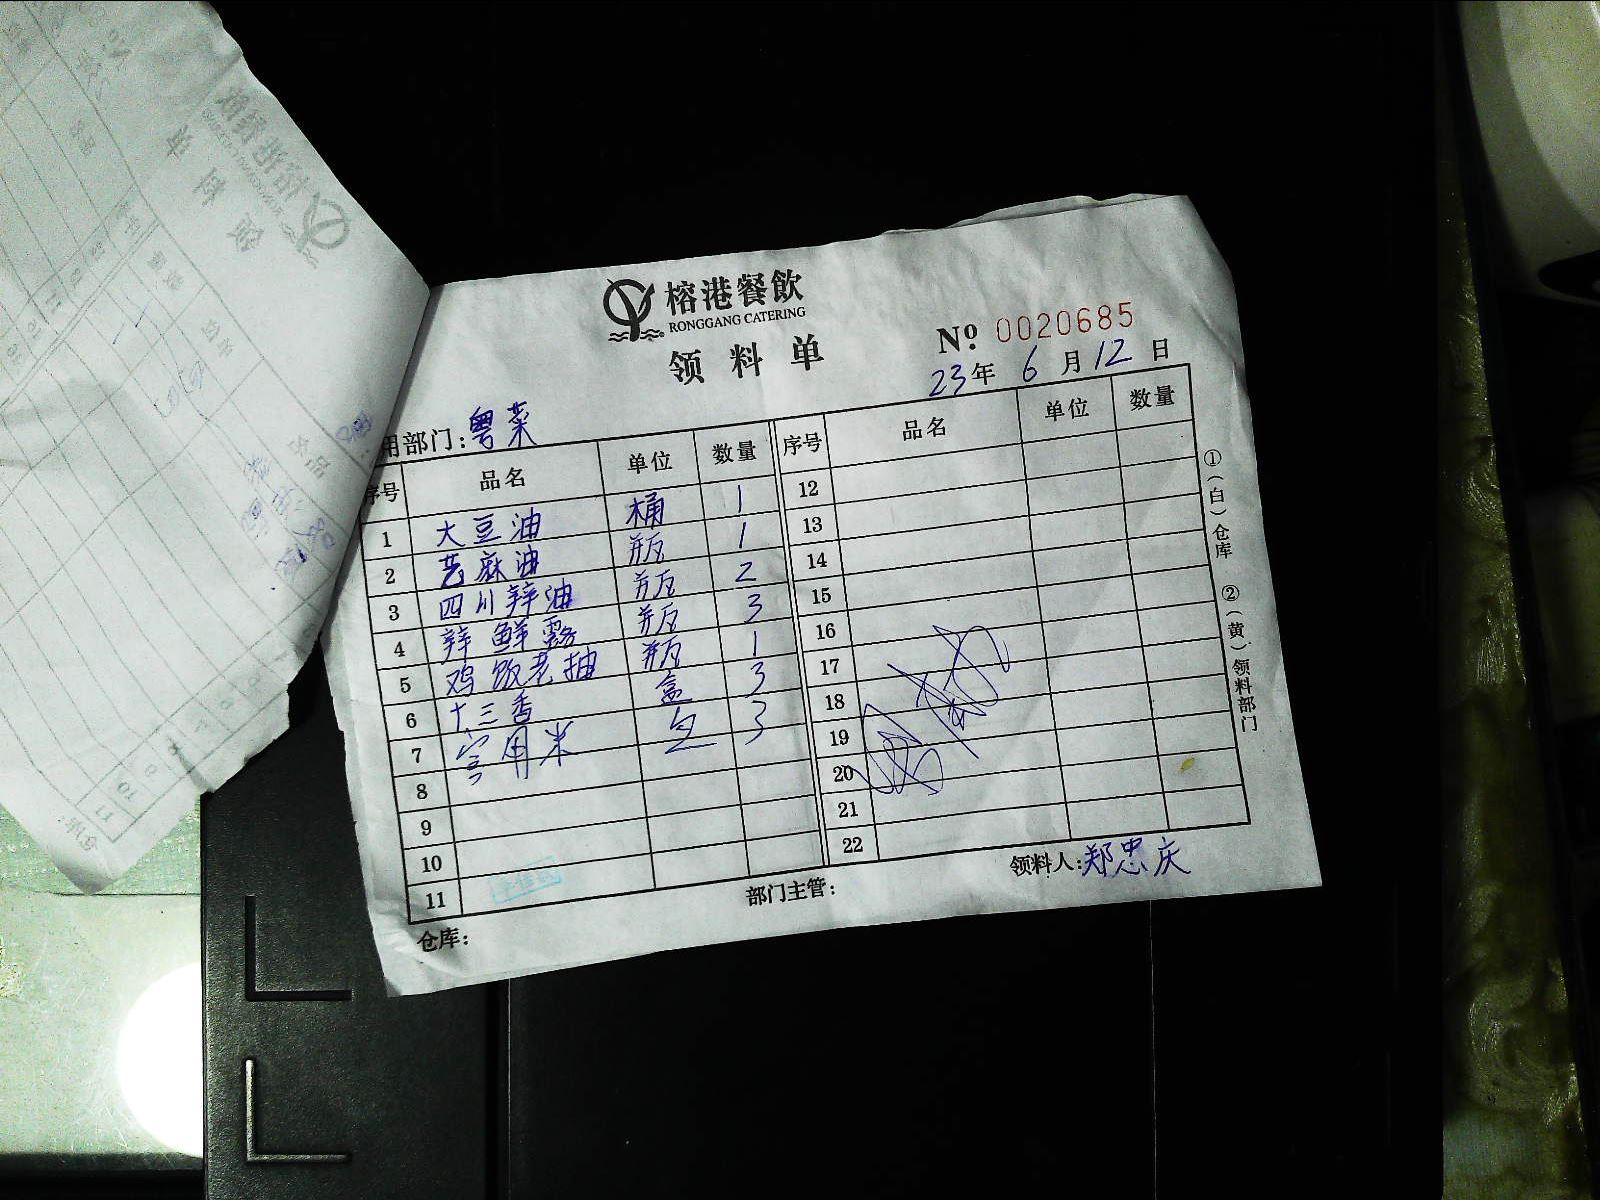 榕港餐飲
RONGGANG CATERING
领料单
Nº 0020685
23年 6月 12日
用部门:粤菜
序号 品名 单位 数量 序号 品名 单位 数量
1 大豆油 桶 1 12
2 芝麻油 瓶 1 13
3 四川辣油 瓶 2 14
4 辣鲜露 瓶 3 15
5 鸡饭老抽 瓶 1 16
6 十三香 盒 3 17
7 食用米 包 3 18
8 19
9 20
10 21
11 22
仓库: 部门主管: 领料人:郑忠庆
①(白)仓库 ②(黄)领料部门